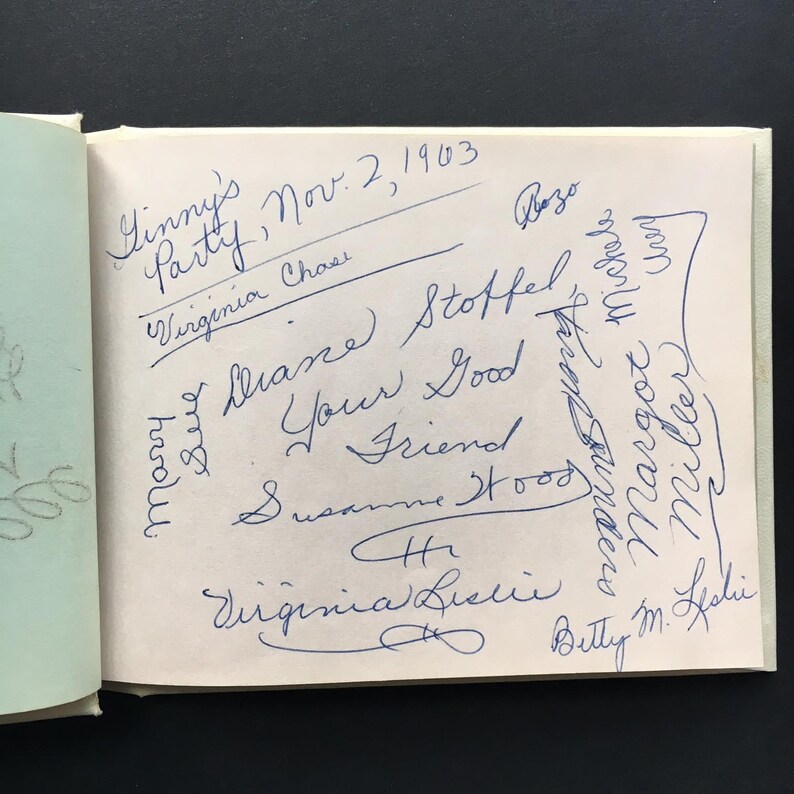 Ginny's
Party, Nov. 2, 1963
Virginia Chase
Bozo
Diane Stoffel
Your Good
Friend
Susanne Wood
Virginia Leslie
Mary
Sue
Saunders
Margot
Miller
Betty M. Leslie